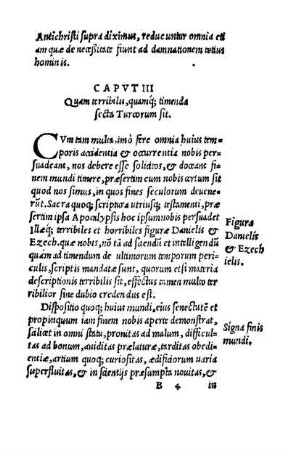 Antichristi supra diximus, reducuntur omnia eti
am quæ de necessitate fiunt ad damnationem totius
hominis.
CAPVT III
Quam terribilis, quamq; timenda
secta Turcorum sit.
CVm tam multa, imò fere omnia huius tem
poris accidentia & occurrentia nobis per
suadeant, nos debere esse solicitos, & doceant fi-
nem mundi timere, præsertim cum nobis certum sit
quod nos simus, in quos fines seculorum deuene
rūt. Sacra quoq; scriptura utriusq; testamenti, præ
sertim ipsa Apocalypsis hoc ipsum nobis persuadet
Illæq; terribiles et horribiles figuræ Danielis &
Ezech. quæ nobis, nō tā ad sciendū et intelligendū
quàm ad timendum de ultimorum temporum peri
culis, scriptis mandatæ sunt, quorum etsi materia
descriptionis terribilis sit, effectus tamen multo ter
ribilior sine dubio credendus est.
Figura
Danielis
& Ezech
ielis.
Dispositio quoq; huius mundi, eius senectutē et
propinquum iam finem nobis aperte demonstrat,
scilicet in omni statu, pronitas ad malum, difficul
tas ad bonum, auiditas prælaturæ, tarditas obedi-
entiæ, artium quoq; curiositas, ædificiorum uaria
superfluitas, & in scientijs præsumpta nouitas, &
Signa finis
mundi.
B 4 in